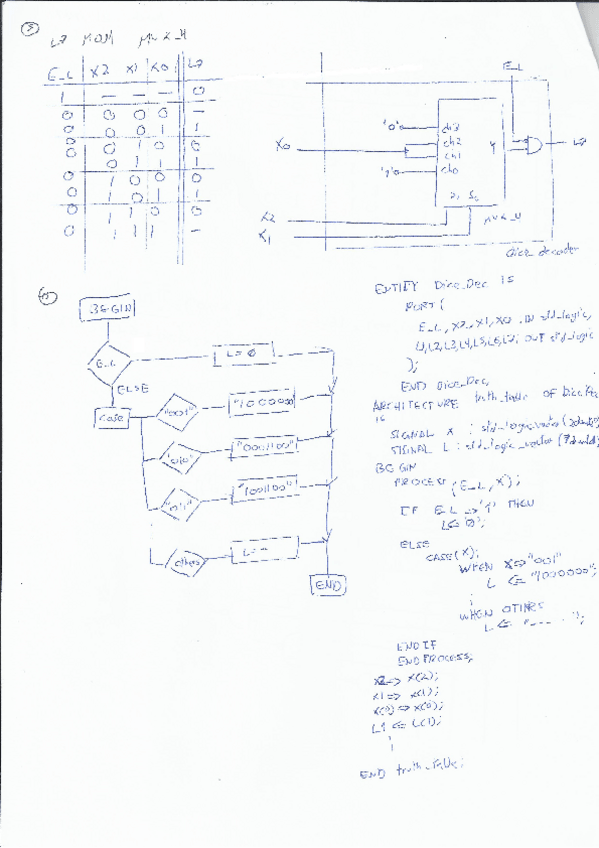 5
L7 MOM MUX_4
E_L X2 X1 X0 L7
1 - - - 0
0 0 0 0 0
0 0 0 1 1
0 0 1 0 0
0 0 1 1 1
0 1 0 0 0
0 1 0 1 1
0 1 1 0 0
0 1 1 1 1
E_L
"0" ch3
X0 ch2 Y L7
ch1
"1" ch0
S0
X2 MUX_4
X1
Dice decoder
BEGIN
E_L L = 0
ELSE
case "001" "1000000"
"010" "0001100"
"011" "1001100"
others L = -
END
ENTITY Dice_Dec IS
PORT(
E_L, X2, X1, X0 : IN std_logic;
L1,L2,L3,L4,L5,L6,L7: OUT std_logic
);
END Dice_Dec;
ARCHITECTURE truth_table OF Dice
is
SIGNAL X : std_logic_vector(
SIGNAL L : std_logic_vector(
BEGIN
PROCESS (E_L, X);
IF E_L = '1' THEN
L <= '0';
ELSE
CASE(X);
WHEN X => "001"
L <= "1000000";
WHEN OTHERS
L <= "---- - -";
END IF
END PROCESS;
X2 => X(2);
X1 => X(1);
X(0) => X(0);
L1 <= L(1);
END truth_table;